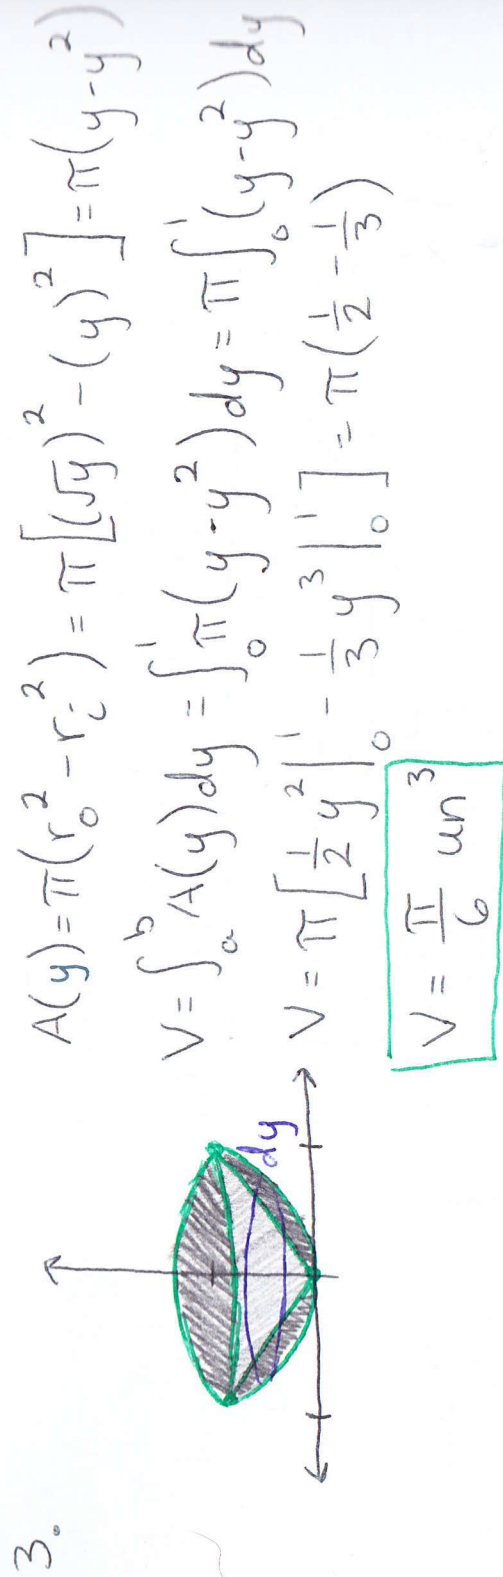 3.
dy
A(y) = π(r₀² - rᵢ²) = π[(√y)² - (y)²] = π(y - y²)
V = ∫ₐᵇ A(y)dy = ∫₀¹ π(y - y²)dy = π ∫₀¹ (y - y²)dy
V = π[½ y² |₀¹ - ⅓ y³ |₀¹] = π(½ - ⅓)
V = π/6 un³